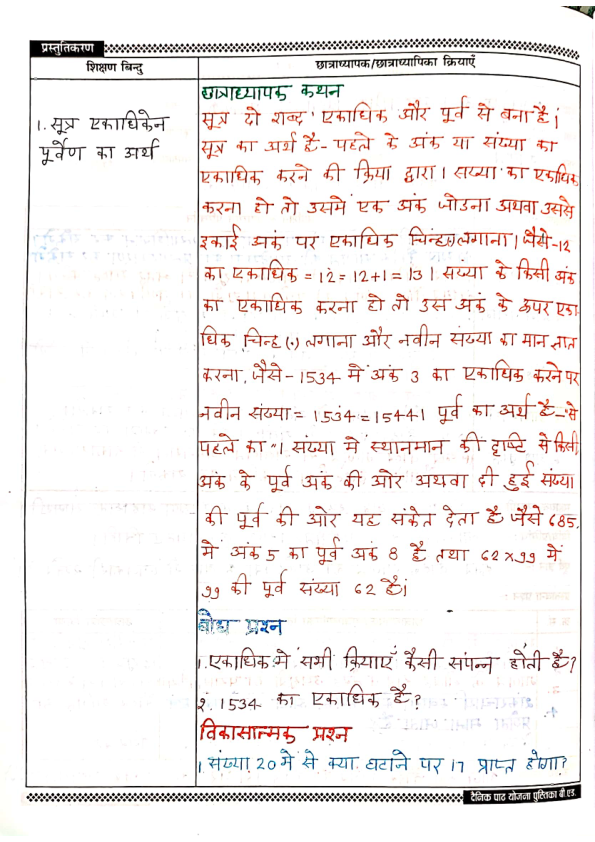 प्रस्तुतिकरण
शिक्षण बिन्दु
छात्राध्यापक/छात्राध्यापिका क्रियाएँ
1. सूत्र एकाधिकेन
पूर्वेण का अर्थ
छात्राध्यापक कथन
सूत्र दो शब्द एकाधिक और पूर्व से बना है।
सूत्र का अर्थ है- पहले के अंक या संख्या का
एकाधिक करने की क्रिया द्वारा। सख्या का एकाधिक
करना हो तो उसमे एक अंक जोडना अथवा उससे
इकाई अंक पर एकाधिक चिन्ह लगाना। जैसे-12
का एकाधिक = 12 = 12+1 = 13। सख्या के किसी अंक
का एकाधिक करना हो तो उस अंक के ऊपर एका
धिक चिन्ह (.) लगाना और नवीन संख्या का मान ज्ञात
करना, जैसे- 1534 में अंक 3 का एकाधिक करने पर
नवीन संख्या = 1534 = 1544। पूर्व का अर्थ है-"से
पहले का"। संख्या मे स्थानमान की दृष्टि से किसी
अंक के पूर्व अंक की ओर अथवा दी हुई संख्या
की पूर्व की ओर यह संकेत देता है जैसे 685
में अंक 5 का पूर्व अंक 8 है तथा 62×99 में
99 की पूर्व संख्या 62 है।
बोध प्रश्न
1. एकाधिक मे सभी क्रियाएँ कैसी संपन्न होती है?
2. 1534 का एकाधिक है?
विकासात्मक प्रश्न
1. संख्या 20 मे से क्या घटाने पर 17 प्राप्त होगा?
दैनिक पाठ योजना पुस्तिका बी.एड.